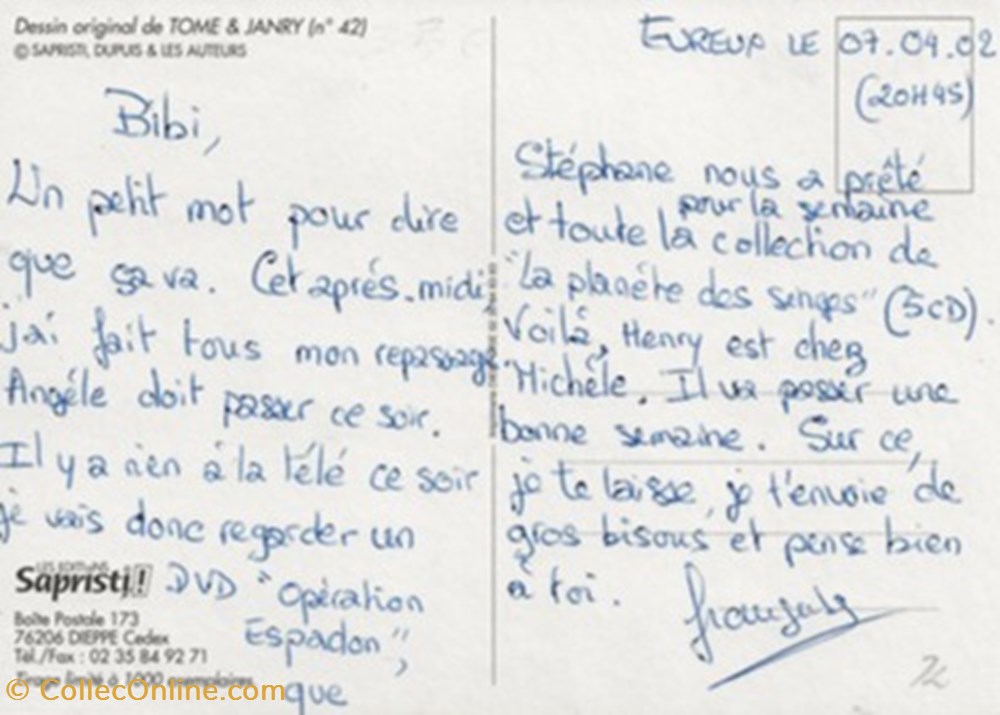 Dessin original de TOME & JANRY (n° 42)
© SAPRISTI, DUPUIS & LES AUTEURS
Bibi,
Un petit mot pour dire
que ça va. Cet après-midi
j'ai fait tous mon repassage
Angéle doit passer ce soir.
Il y a rien à la télé ce soir
je vais donc regarder un
DVD "Opération
Espadon",
que
LES EDITIONS
Sapristi!
Boîte Postale 173
76206 DIEPPE Cedex
Tél./Fax : 02 35 84 92 71
Tirage limité à 1000 exemplaires
EVREUX LE 07.04.02
(20H45)
Stéphane nous a prêté
pour la semaine
et toute la collection de
"La planète des singes" (5CD).
Voilà, Henry est chez
Michèle. Il va passer une
bonne semaine. Sur ce,
je te laisse, je t'envoie de
gros bisous et pense bien
à toi.
© CollecOnline.com